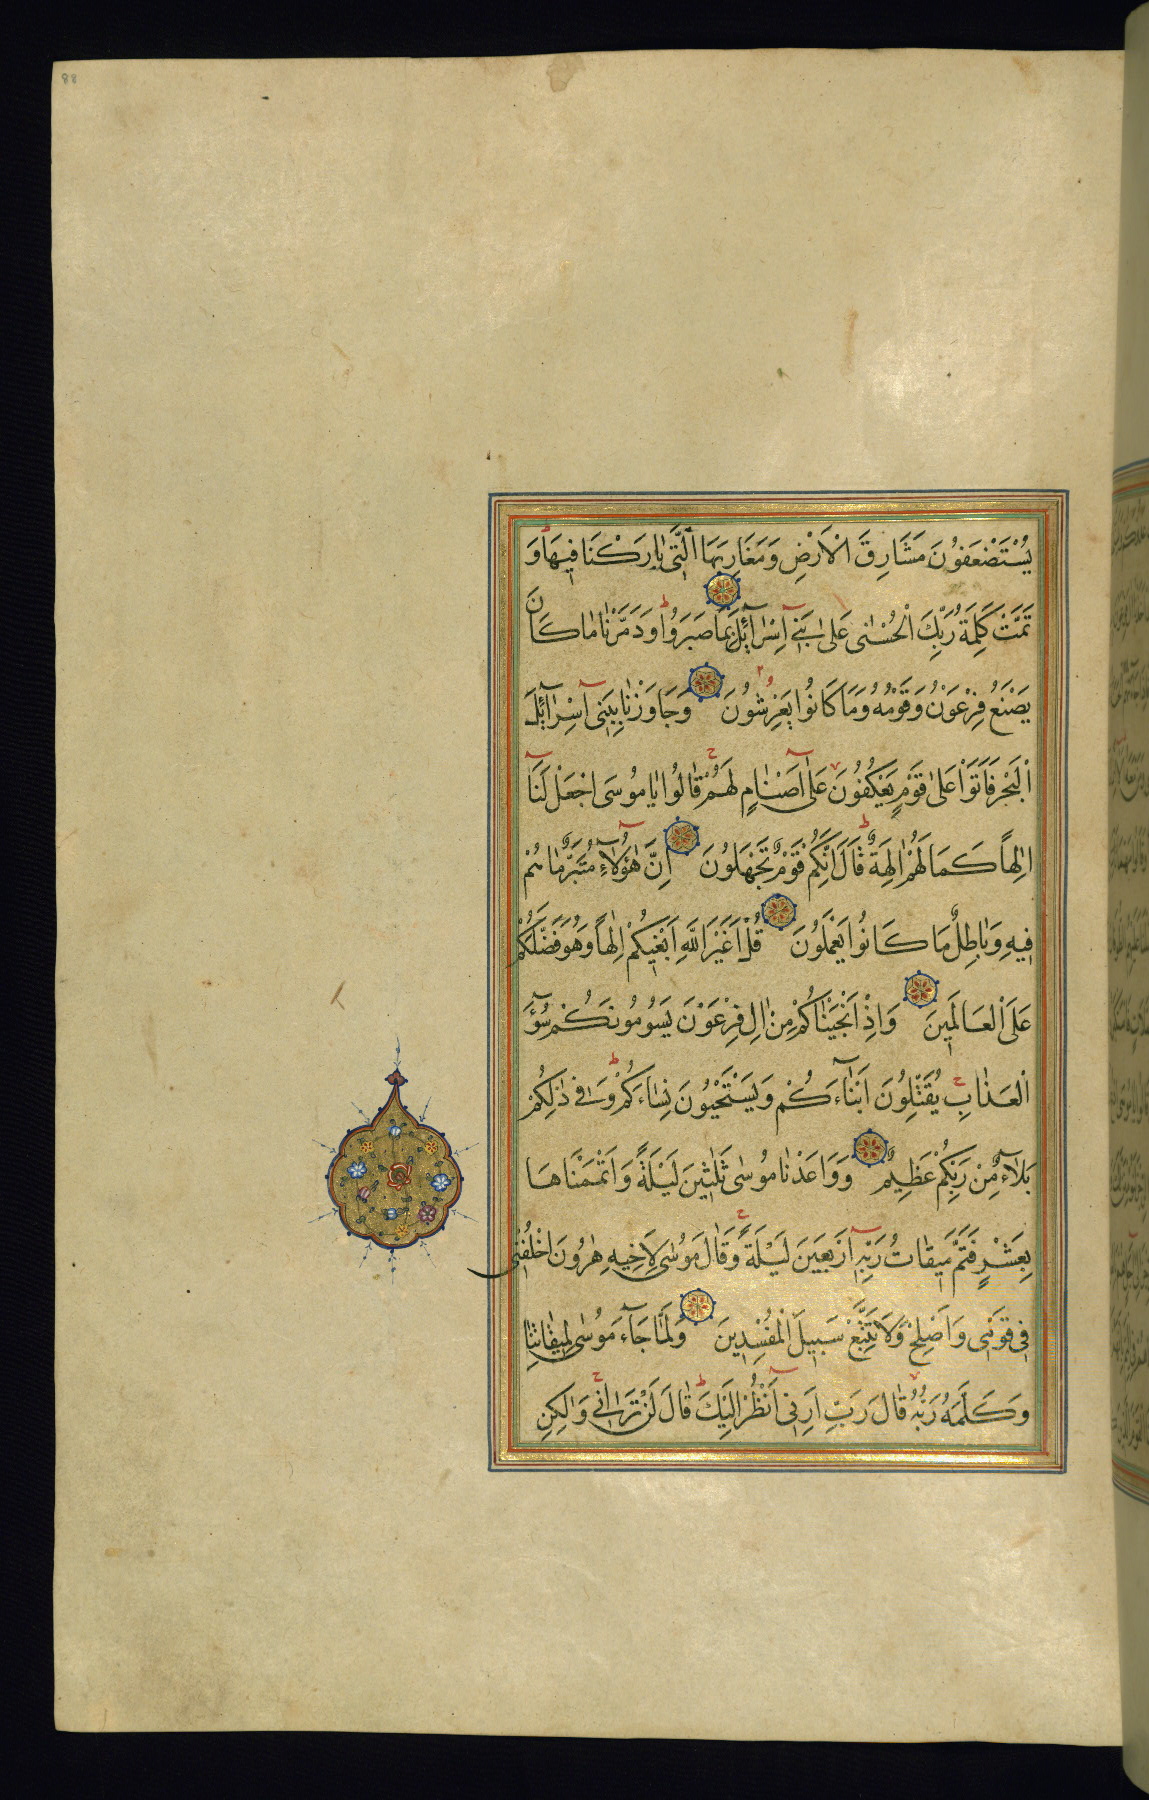 88
يُسْتَضْعَفُونَ مَشَارِقَ الْاَرْضِ وَمَغَارِبَهَا الَّتِى بَارَكْنَا فِيهَا وَ
تَمَّتْ كَلِمَةُ رَبِّكَ الْحُسْنٰى عَلٰى بَنِى اِسْرَآئِلَ بِمَا صَبَرُوا وَدَمَّرْنَا مَا كَانَ
يَصْنَعُ فِرْعَوْنُ وَقَوْمُهُ وَمَا كَانُوا يَعْرِشُونَ وَجَاوَزْنَا بِبَنِى اِسْرَآئِلَ
الْبَحْرَ فَاَتَوْا عَلٰى قَوْمٍ يَعْكُفُونَ عَلٰى اَصْنَامٍ لَهُمْ قَالُوا يَا مُوسَى اجْعَلْ لَنَآ
اِلٰهاً كَمَا لَهُمْ اٰلِهَةٌ قَالَ اِنَّكُمْ قَوْمٌ تَجْهَلُونَ اِنَّ هٰؤُلَآءِ مُتَبَّرٌ مَا هُمْ
فِيهِ وَبَاطِلٌ مَا كَانُوا يَعْمَلُونَ قُلْ اَغَيْرَ اللّٰهِ اَبْغِيكُمْ اِلٰهاً وَهُوَ فَضَّلَكُمْ
عَلَى الْعَالَمِينَ وَاِذْ اَنْجَيْنَاكُمْ مِنْ اٰلِ فِرْعَوْنَ يَسُومُونَكُمْ سُوٓءَ
الْعَذَابِ يُقَتِّلُونَ اَبْنَآءَكُمْ وَيَسْتَحْيُونَ نِسَاءَكُمْ وَفِى ذٰلِكُمْ
بَلَآءٌ مِنْ رَبِّكُمْ عَظِيمٌ وَوَاعَدْنَا مُوسٰى ثَلٰثِينَ لَيْلَةً وَاَتْمَمْنَاهَا
بِعَشْرٍ فَتَمَّ مِيقَاتُ رَبِّهِ اَرْبَعِينَ لَيْلَةً وَقَالَ مُوسٰى لِاَخِيهِ هٰرُونَ اخْلُفْنِى
فِى قَوْمِى وَاَصْلِحْ وَلَا تَتَّبِعْ سَبِيلَ الْمُفْسِدِينَ وَلَمَّا جَآءَ مُوسٰى لِمِيقَاتِنَا
وَكَلَّمَهُ رَبُّهُ قَالَ رَبِّ اَرِنِى اَنْظُرْ اِلَيْكَ قَالَ لَنْ تَرَانِى وَلٰكِنِ